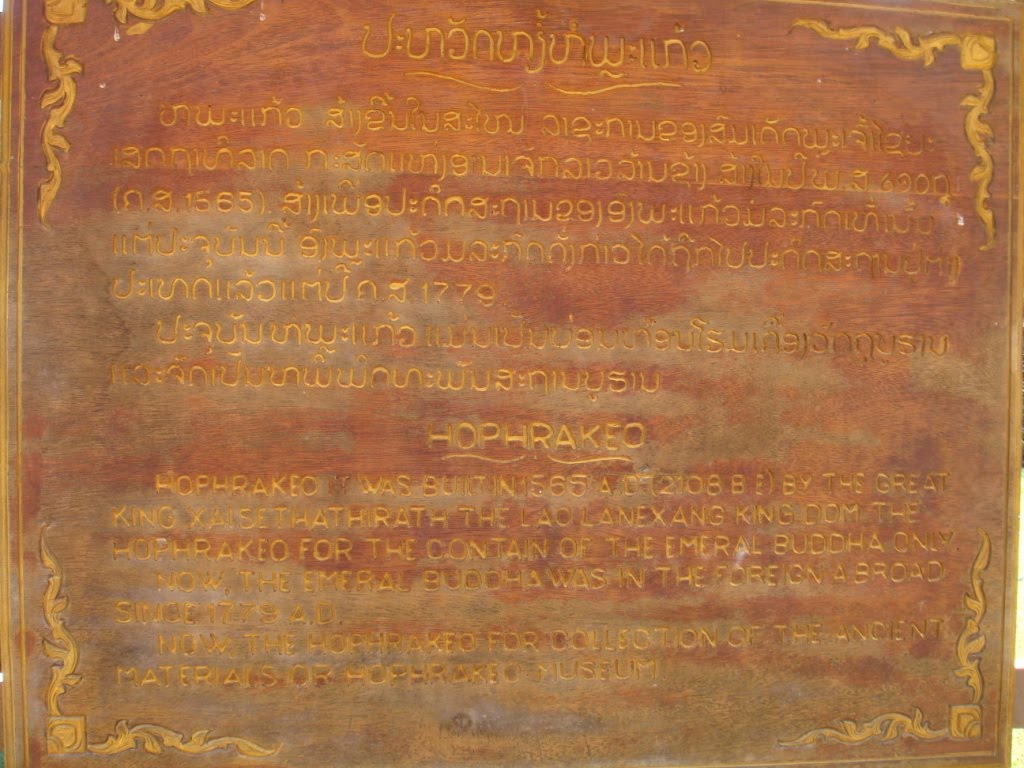 ປະຫວັດຫໍພຼະແກ້ວ
ຫໍພະແກ້ວ ສ້າງຂຶ້ນໃນສະໄໝ ລາຊະການຂອງສົມເດັດພຼະເຈົ້າໄຊຍະ
ເສດຖາທິລາດ ກະສັດແຫ່ງອານາຈັກລາວລ້ານຊ້າງ ສ້າງໃນປີ ພ.ສ
(ຄ.ສ.1565). ສ້າງເພື່ອປະດິດສະຖານຂອງອົງພະແກ້ວມໍລະກົດເທົ່ານັ້ນ
ແຕ່ປະຈຸບັນນີ້ ອົງພຼະແກ້ວມໍລະກົດດັ່ງກ່າວໄດ້ຖືກໄປປະດິດສະຖານຢູ່ຕ່າງ
ປະເທດແລ້ວແຕ່ປີ ຄ.ສ. 1779.
ປະຈຸບັນຫໍພຼະແກ້ວ ແມ່ນເປັນບ່ອນເຕົ້າໂຮມເຄື່ອງວັດຖຸບູຮານ
ແລະຈັດເປັນຫໍພິພິດທະພັນສະຖານບູຮານ
HOPHRAKEO
HOPHRAKEO IT WAS BUILT IN 1565 A.D (2108 B.E) BY THE GREAT
KING XAISETHATHIRATH THE LAO LANEXANG KING DOM. THE
HOPHRAKEO FOR THE CONTAIN OF THE EMERAL BUDDHA ONLY.
NOW, THE EMERAL BUDDHA WAS IN THE FOREIGN ABROAD
SINCE 1779 A.D.
NOW, THE HOPHRAKEO FOR COLLECTION OF THE ANCIENT
MATERIALS OR HOPHRAKEO MUSEUM